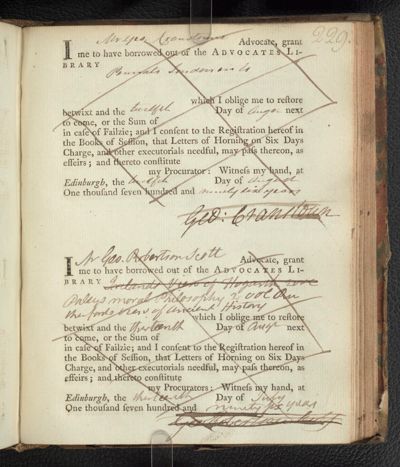 229.
I Mr Geo. Cranstoun Advocate, grant
me to have borrowed out of the ADVOCATES LI-
BRARY
which I oblige me to reſtore
betwixt and the twelfth Day of next
to come, or the Sum of
in caſe of Failzie; and I conſent to the Regiſtration hereof in
the Books of Seſſion, that Letters of Horning on Six Days
Charge, and other executorials needful, may paſs thereon, as
effeirs; and thereto conſtitute
my Procurator: Witneſs my hand, at
Edinburgh, the twelfth Day of August
One thouſand ſeven hundred and ninety six years
Geo: Cranstoun
I Mr Geo. Robertson Scott
Advocate, grant
me to have borrowed out of the ADVOCATES LI-
BRARY Irelands View of Hogarth
Paleys moral Philosophy 2 vol
the fords of Ancient History
which I oblige me to reſtore
betwixt and the thirteenth Day of Augt next
to come, or the Sum of
in caſe of Failzie; and I conſent to the Regiſtration hereof in
the Books of Seſſion, that Letters of Horning on Six Days
Charge, and other executorials needful, may paſs thereon, as
effeirs; and thereto conſtitute
my Procurators: Witneſs my hand, at
Edinburgh, the thirteenth Day of July
One thouſand ſeven hundred and ninety six years